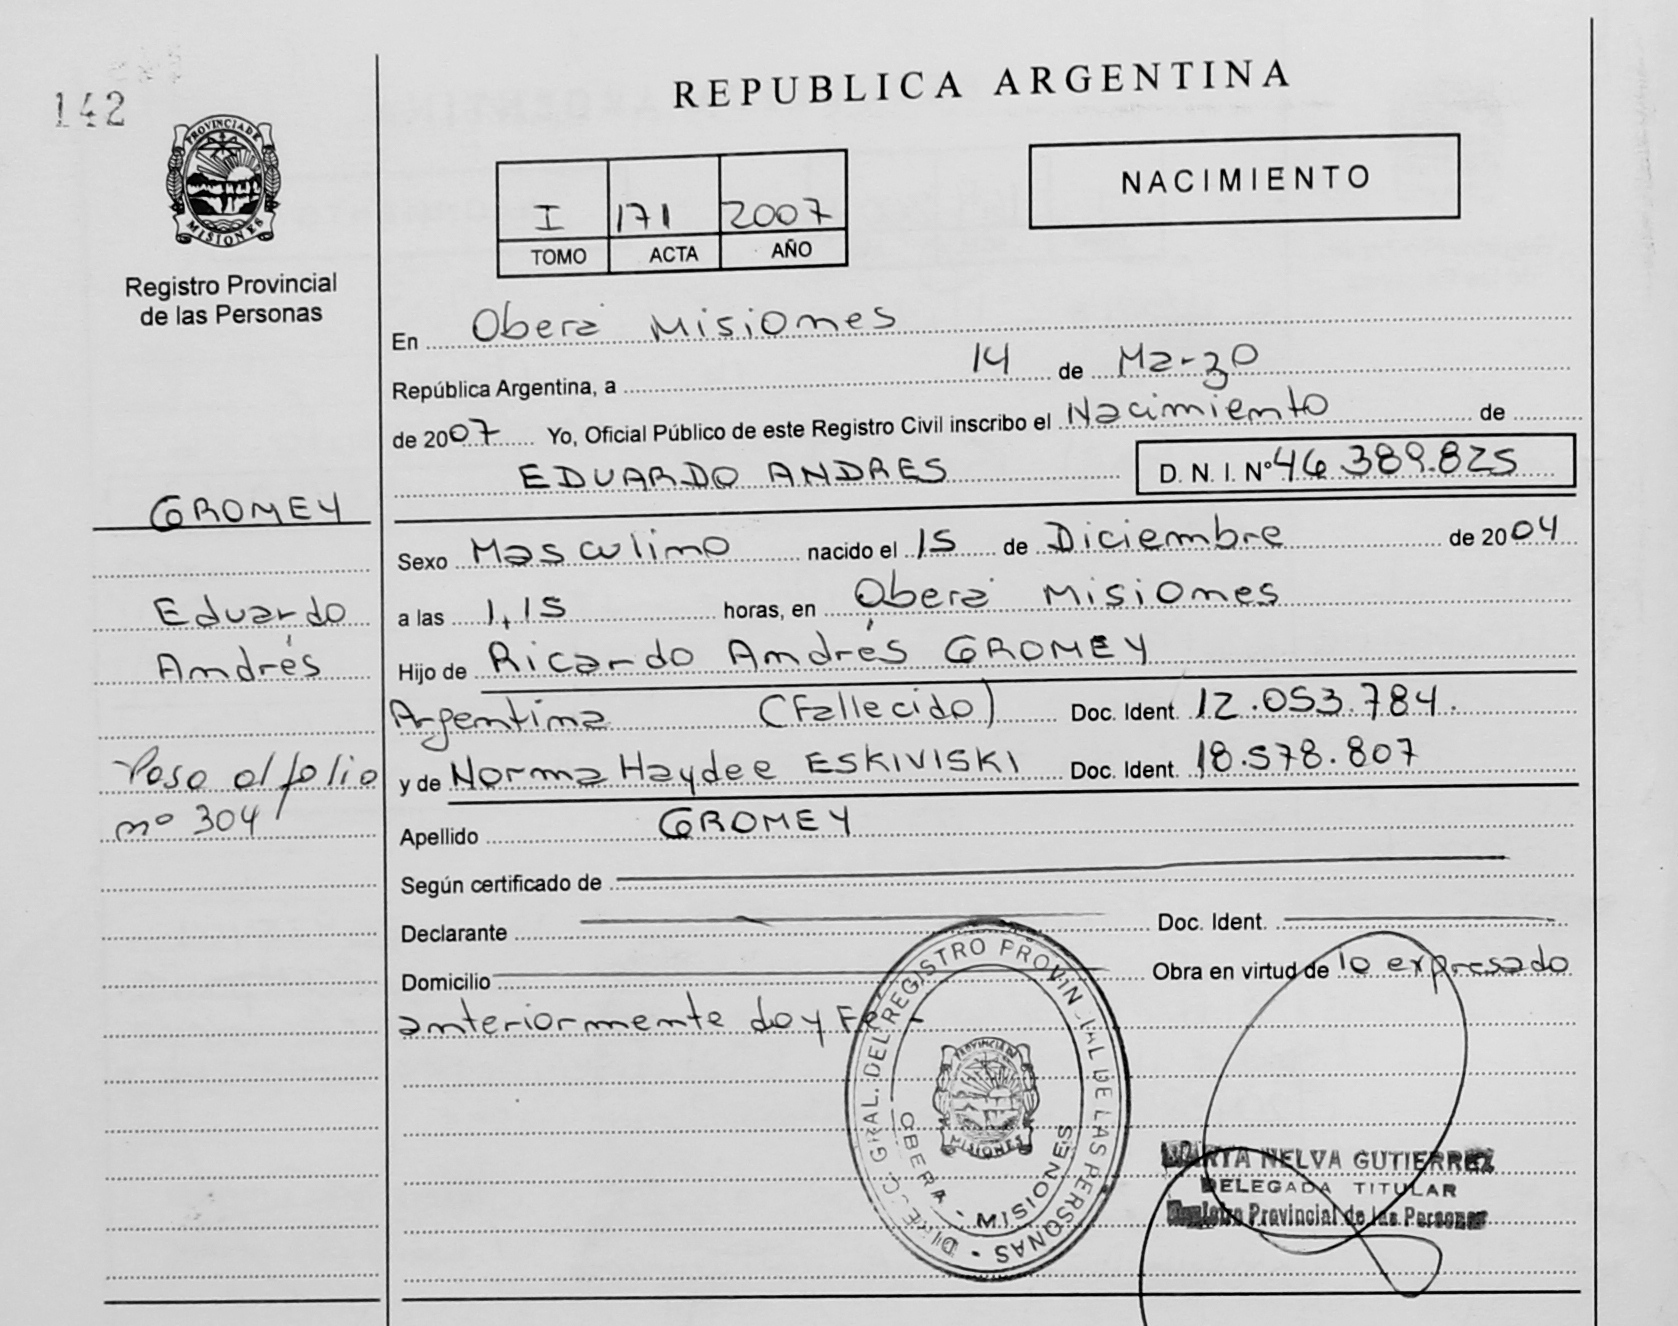 142
PROVINCIA DE
MISIONES
Registro Provincial
de las Personas
REPUBLICA ARGENTINA
I 171 2007
TOMO ACTA AÑO
NACIMIENTO
En Oberá Misiones
República Argentina, a 14 de Marzo
de 2007 Yo, Oficial Público de este Registro Civil inscribo el Nacimiento de
EDUARDO ANDRES D. N. I. Nº 46.389.825
GROMEY
Sexo Masculino nacido el 15 de Diciembre de 2004
Eduardo
a las 1,15 horas, en Oberá Misiones
Andrés
Hijo de Ricardo Andrés GROMEY
Argentina (Fallecido) Doc. Ident. 12.053.784.
Paso al folio
nº 304
y de Norma Haydee ESKIVISKI Doc. Ident. 18.578.807
Apellido GROMEY
Según certificado de
Declarante Doc. Ident.
Domicilio Obra en virtud de lo expresado
anteriormente doy Fé.-
DIREC. GRAL. DEL REGISTRO PROVINCIAL DE LAS PERSONAS
PROVINCIA DE
MISIONES
OBERA - MISIONES
NELVA GUTIERREZ
DELEGADA TITULAR
Registro Provincial de las Personas